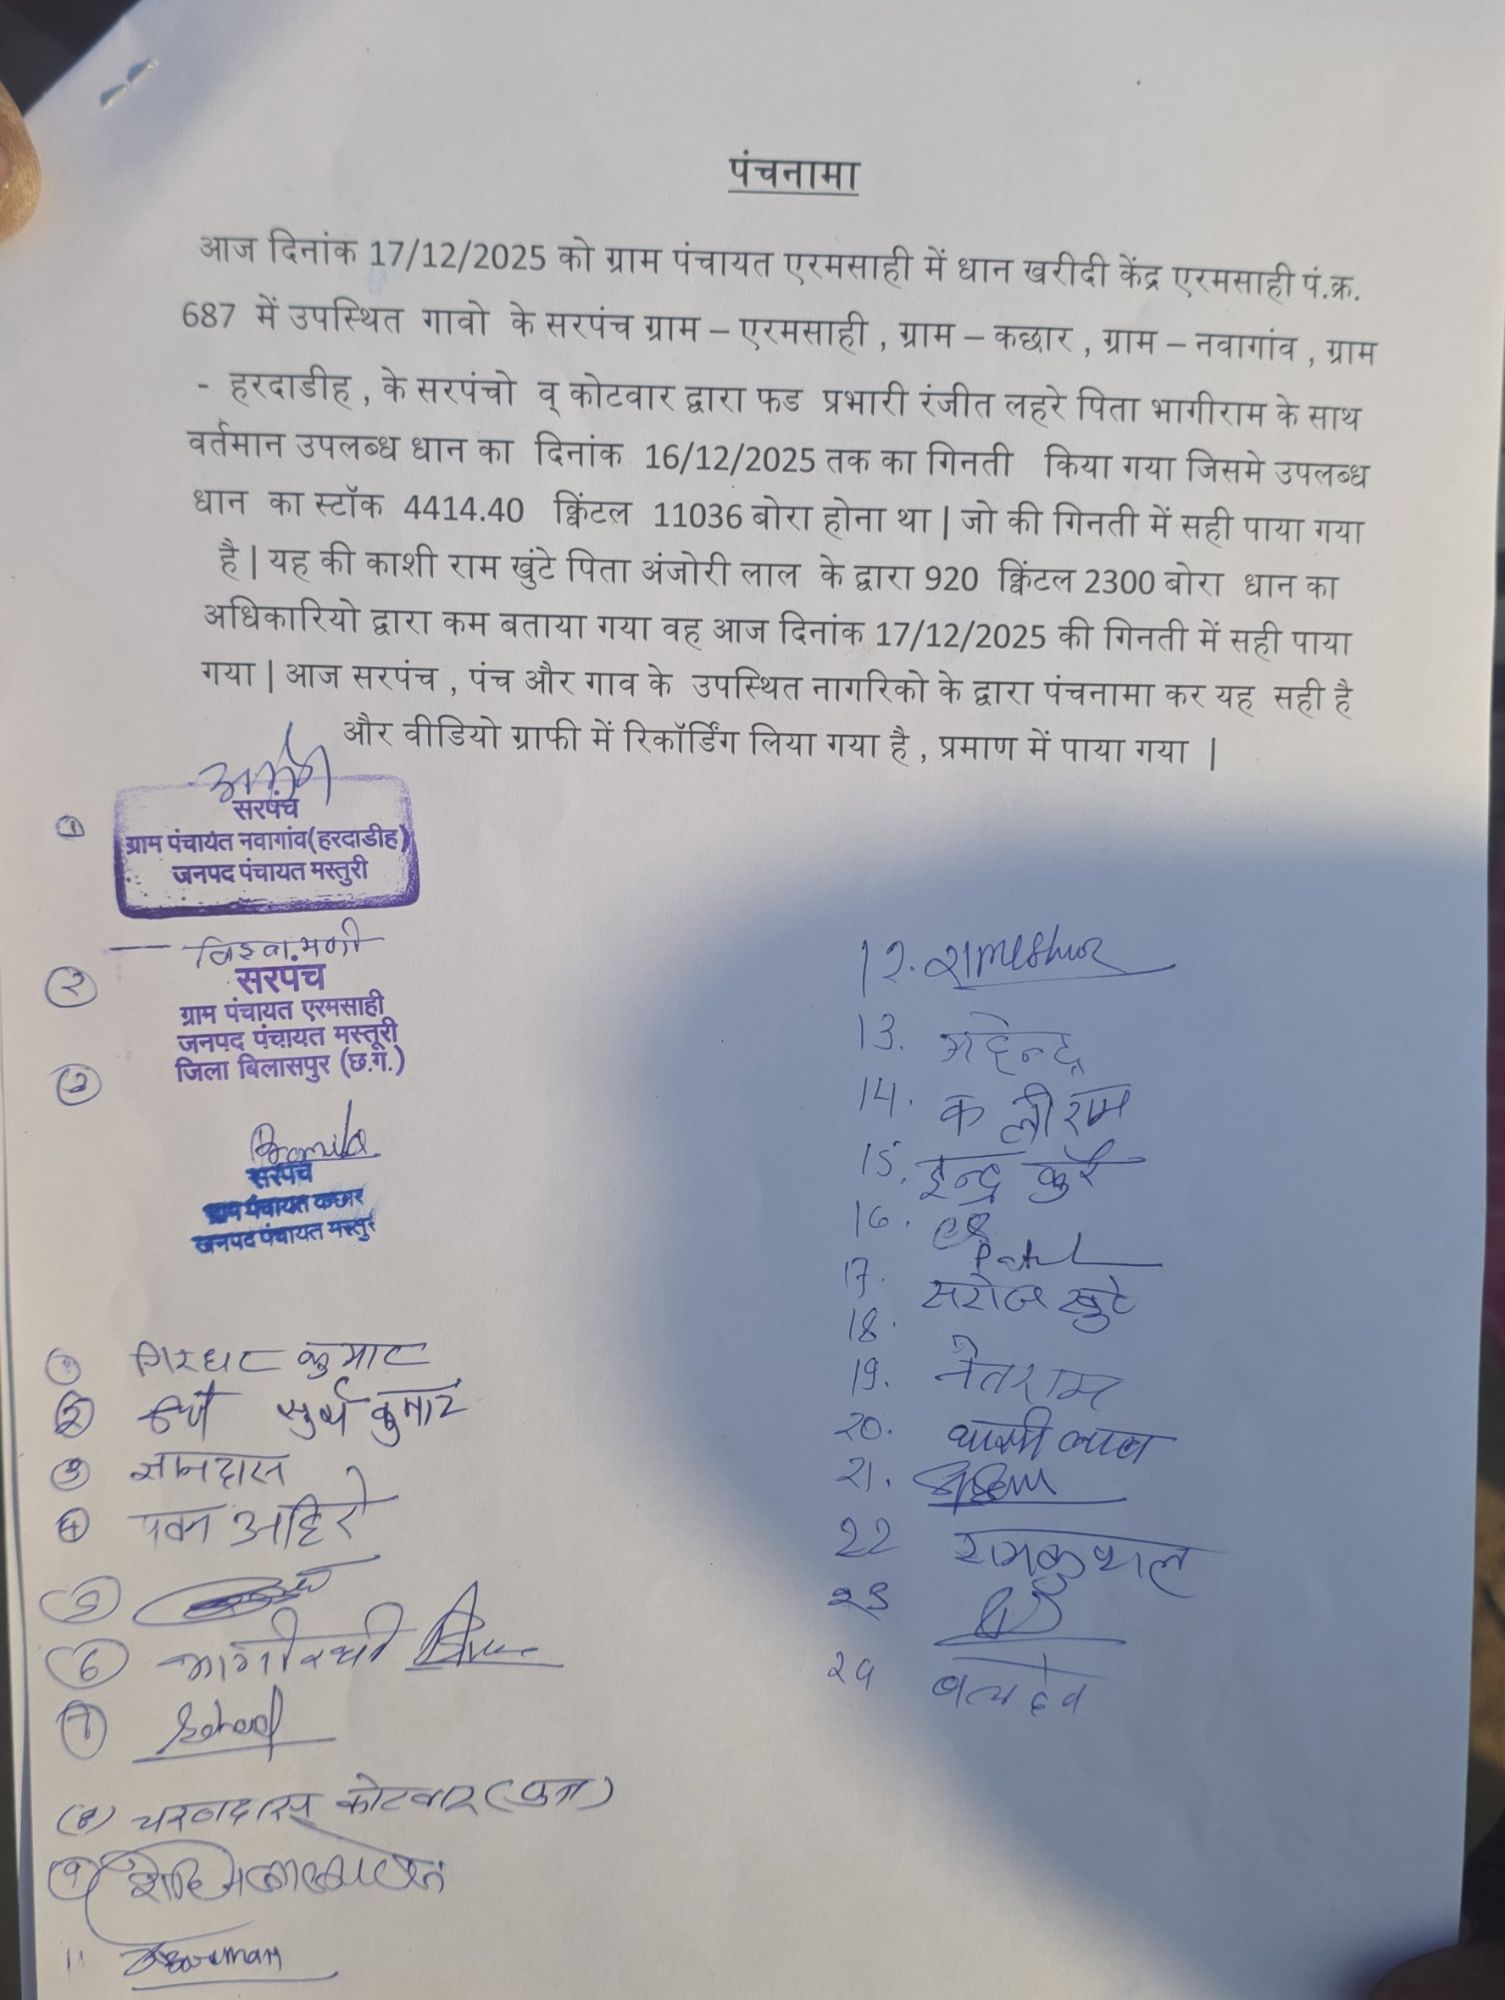 पंचनामा
आज दिनांक 17/12/2025 को ग्राम पंचायत एरमसाही में धान खरीदी केंद्र एरमसाही पं.क्र.
687 में उपस्थित गावो के सरपंच ग्राम – एरमसाही , ग्राम – कछार , ग्राम – नवागांव , ग्राम
- हरदाडीह , के सरपंचो व् कोटवार द्वारा फड प्रभारी रंजीत लहरे पिता भागीराम के साथ
वर्तमान उपलब्ध धान का दिनांक 16/12/2025 तक का गिनती किया गया जिसमे उपलब्ध
धान का स्टॉक 4414.40 क्विंटल 11036 बोरा होना था | जो की गिनती में सही पाया गया
है | यह की काशी राम खुंटे पिता अंजोरी लाल के द्वारा 920 क्विंटल 2300 बोरा धान का
अधिकारियो द्वारा कम बताया गया वह आज दिनांक 17/12/2025 की गिनती में सही पाया
गया | आज सरपंच , पंच और गाव के उपस्थित नागरिको के द्वारा पंचनामा कर यह सही है
और वीडियो ग्राफी में रिकॉर्डिंग लिया गया है , प्रमाण में पाया गया |
①
सरपंच
ग्राम पंचायत नवागांव(हरदाडीह)
जनपद पंचायत मस्तुरी
②
सरपंच
ग्राम पंचायत एरमसाही
जनपद पंचायत मस्तूरी
जिला बिलासपुर (छ.ग.)
③
सरपंच
ग्राम पंचायत कछार
जनपद पंचायत मस्तुरी
① गिरधर कुमार
② सुर्य कुमार
③ ज्ञानदास
④ पवन अहिरे
5
⑥ भागीरथी
⑦
(8) चरणदास कोटवार (पुत्र)
9
11
12. rameshwar
13. महेन्द्र
14. कलीराम
15. इन्द्र कुर्रे
16.
Patel
17. सरोज खुटे
18.
19. नेतराम
20.
21.
22 रामकुशल
23
24